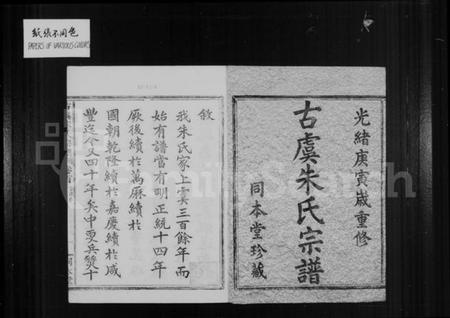 紙張不同色
PAPERS OF VARIOUS COLORS
光緒庚寅歲重修
古虞朱氏宗譜
同本堂珍藏
敘
我朱氏家上虞三百餘年而
始有譜當有明正統十四年
厥後續於萬厤續於
國朝乾隆續於嘉慶續於咸
豐迄今又四十年矣中更兵燹十
FamilySearch